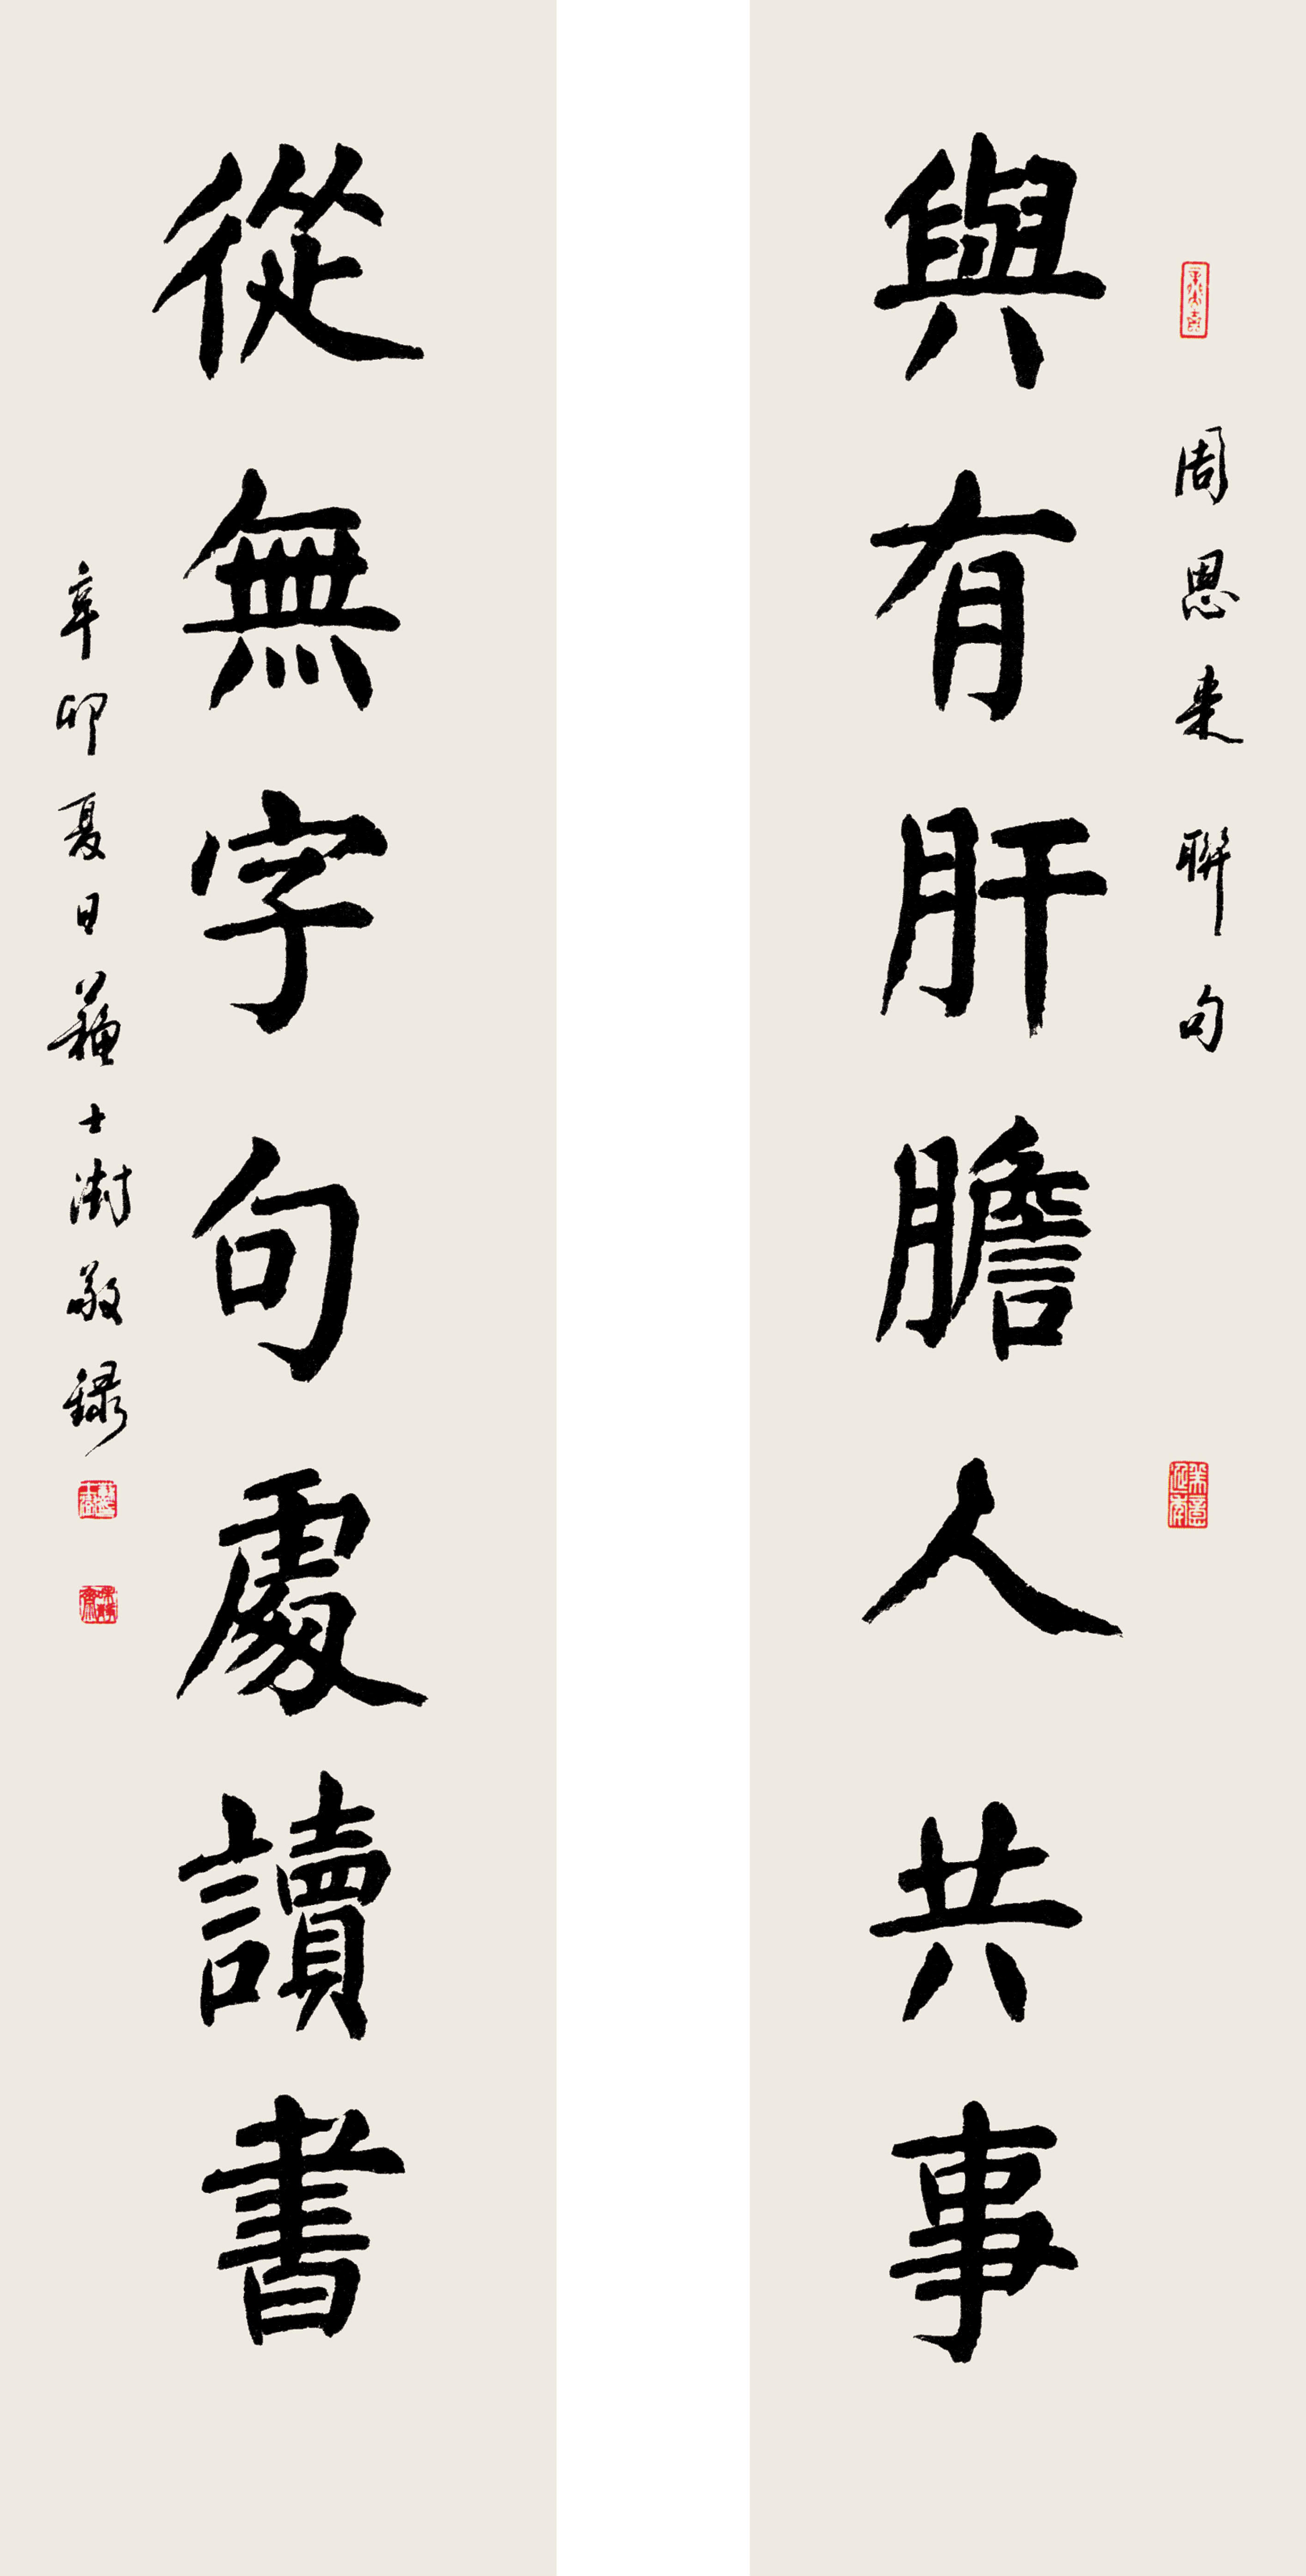 周恩来聯句
與有肝膽人共事
從無字句處讀書
辛卯夏日蘇士澍敬録